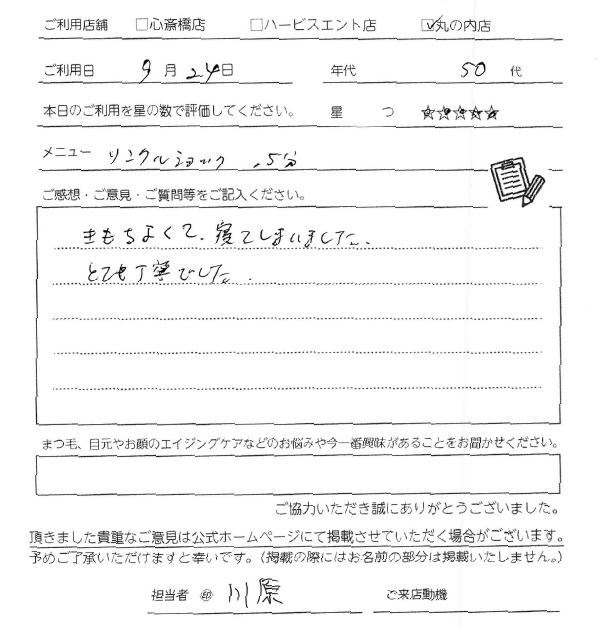 ご利用店舗 □心斎橋店 □ハービスエント店 ☑丸の内店
ご利用日 9月24日 年代 50代
本日のご利用を星の数で評価してください。 星 つ ☆☆☆☆☆
メニュー リンクルショック .5分
ご感想・ご意見・ご質問等をご記入ください。
きもちよくて、寝てしまいました。
とても丁寧でした。
まつ毛、目元やお顔のエイジングケアなどのお悩みや今一番興味があることをお聞かせください。
ご協力いただき誠にありがとうございました。
頂きました貴重なご意見は公式ホームページにて掲載させていただく場合がございます。
予めご了承いただけますと幸いです。（掲載の際にはお名前の部分は掲載いたしません。）
担当者 ㊞ 川原 ご来店動機